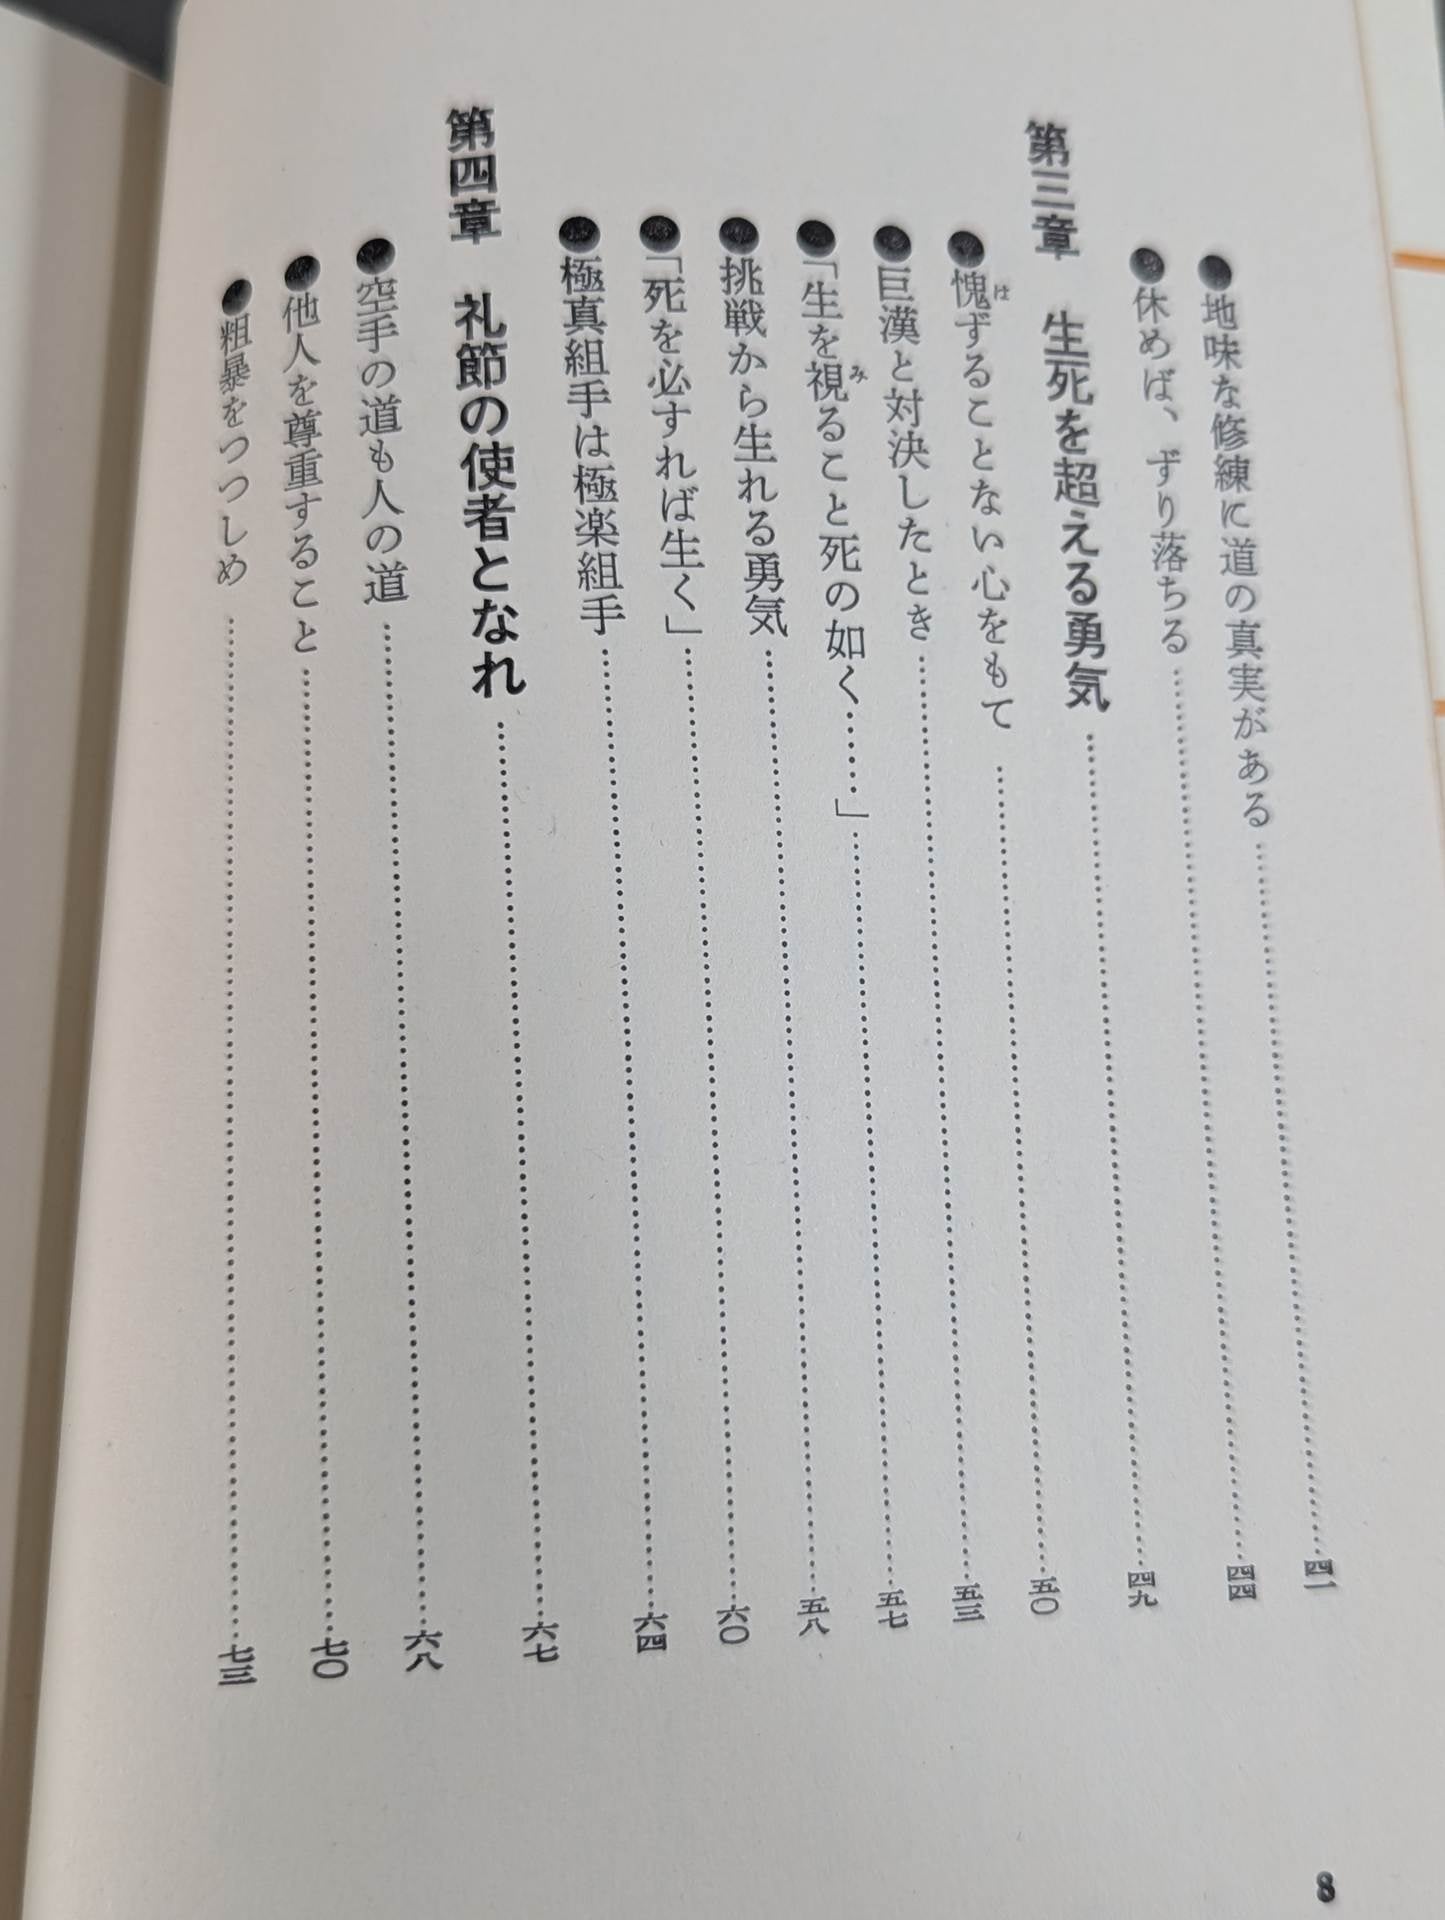 ●地味な修練に道の真実がある……………………四一
●休めば、ずり落ちる……………………四四
第三章　生死を超える勇気……………………四九
●愧ずることない心をもて……………………五〇
●巨漢と対決したとき……………………五三
●「生を視ること死の如く……」……………………五七
●挑戦から生れる勇気……………………五八
●「死を必すれば生く」……………………六〇
●極真組手は極楽組手……………………六四
第四章　礼節の使者となれ……………………六七
●空手の道も人の道……………………六八
●他人を尊重すること……………………七〇
●粗暴をつつしめ……………………七三
8